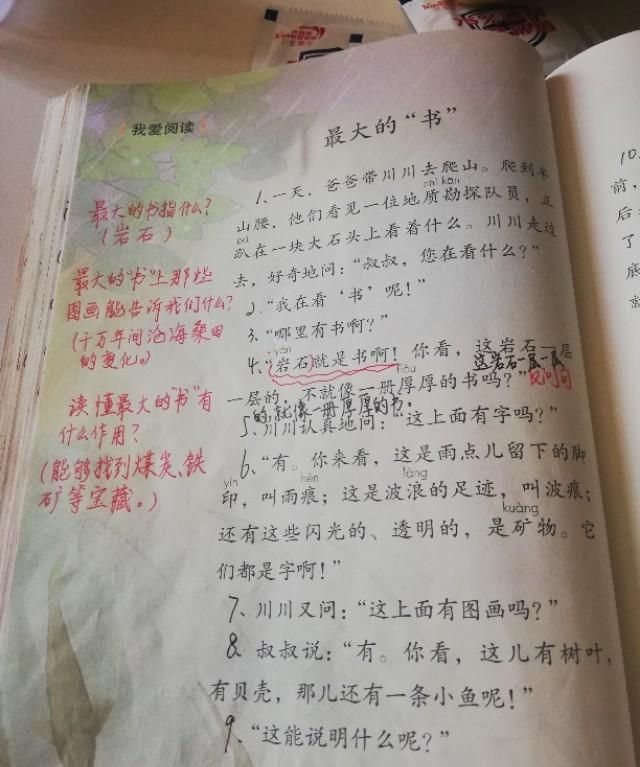 我爱阅读
最大的“书”
1、一天，爸爸带川川去爬山。爬到半
zhì kān
山腰，他们看见一位地质勘探队员，正
pā
趴在一块大石头上看着什么。川川走过
去，好奇地问：“叔叔，您在看什么？”
2、“我在看‘书’呢！”
3、“哪里有书啊？”
yán
4、“岩石就是书啊！你看，这岩石一层
这岩石一层一层
hòu
一层的，不就像一册厚厚的书吗？”
反问句
的，就像一册厚厚的书。
5、川川认真地问：“这上面有字吗？”
6、“有。你来看，这是雨点儿留下的脚
yìn hén làng
印，叫雨痕；这是波浪的足迹，叫波痕；
kuàng
还有这些闪光的、透明的，是矿物。它
们都是字啊！”
7、川川又问：“这上面有图画吗？”
8、叔叔说：“有。你看，这儿有树叶，
有贝壳，那儿还有一条小鱼呢！”
9、“这能说明什么呢？”
最大的书指什么？
（岩石）
最大的“书”上那些
图画能告诉我们什么？
（千万年间沧海桑田
的变化。）
读懂最大的“书”有
什么作用？
（能够找到煤炭、铁
矿等宝藏。）
10、
前，
后
了
底